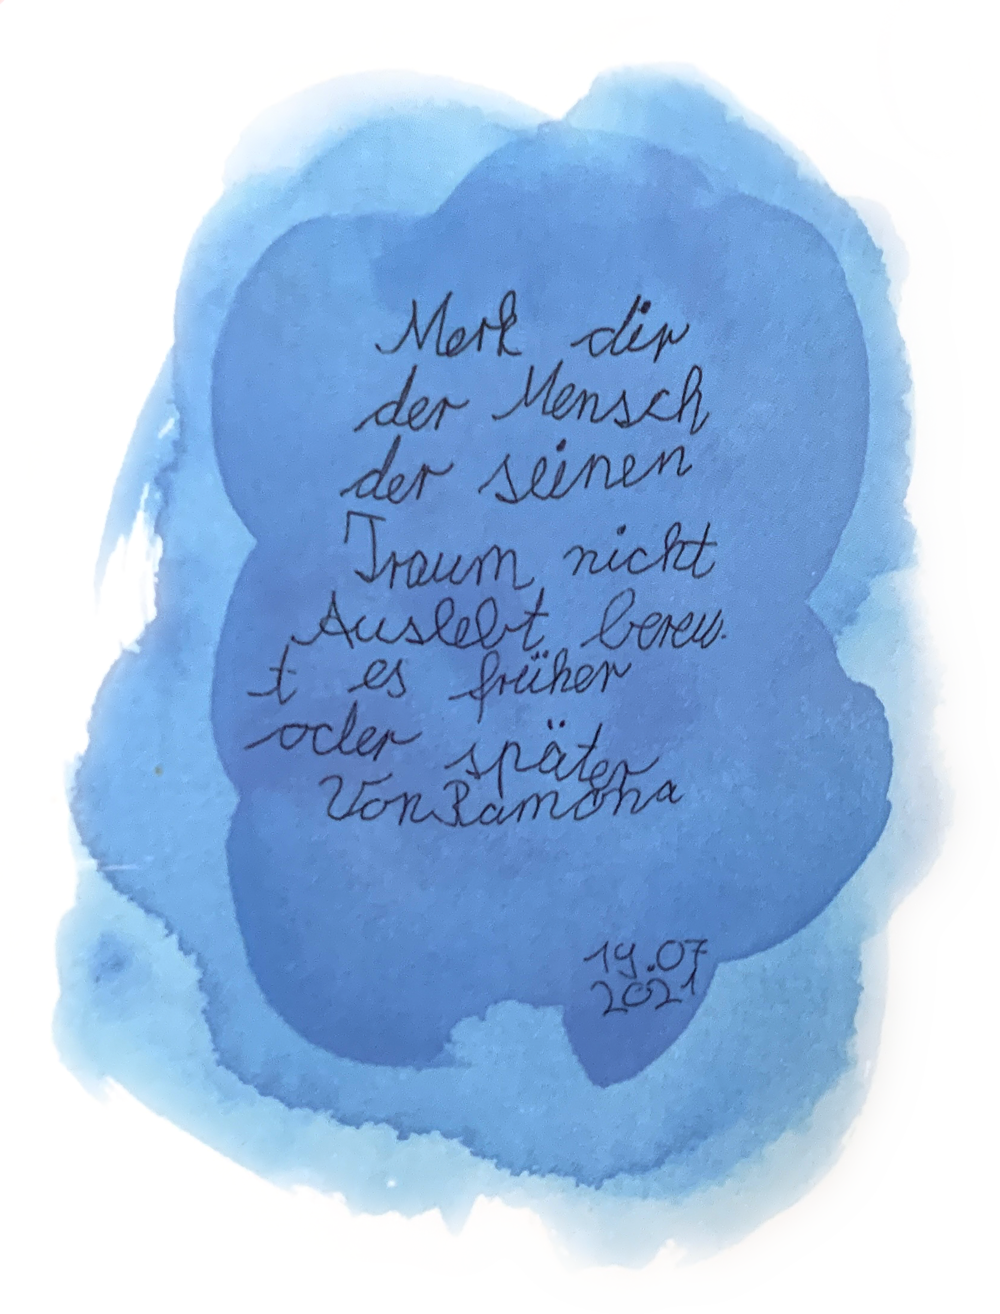 Merk dir
der Mensch
der seinen
Traum nicht
Auslebt bereu-
t es früher
oder später
Von Ramona
19.07
2021